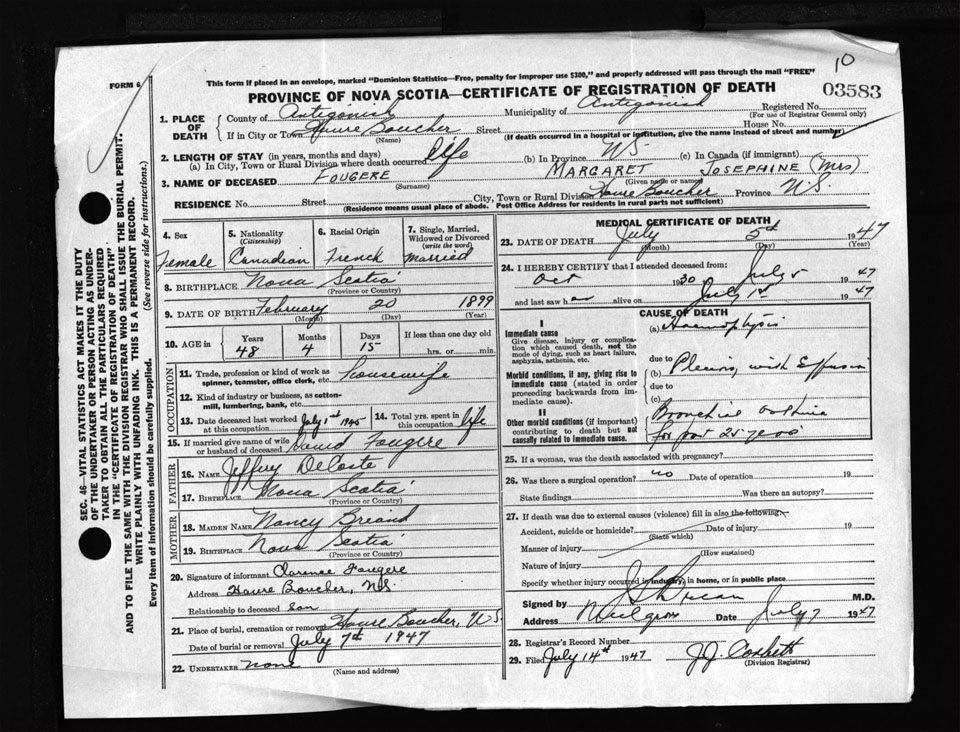 10
FORM 6
This form if placed in an envelope, marked "Dominion Statistics—Free, penalty for improper use $300," and properly addressed will pass through the mail "FREE"
PROVINCE OF NOVA SCOTIA—CERTIFICATE OF REGISTRATION OF DEATH
03583
SEC. 46—VITAL STATISTICS ACT MAKES IT THE DUTY
OF THE UNDERTAKER OR PERSON ACTING AS UNDER-
TAKER TO OBTAIN ALL THE PARTICULARS REQUIRED
IN THE "CERTIFICATE OF REGISTRATION OF DEATH"
AND TO FILE THE SAME WITH THE DIVISION REGISTRAR WHO SHALL ISSUE THE BURIAL PERMIT.
WRITE PLAINLY WITH UNFADING INK. THIS IS A PERMANENT RECORD.
Every item of information should be carefully supplied. (See reverse side for instructions.)
1. PLACE OF DEATH
County of Antigonish Municipality of Antigonish Registered No.
(For use of Registrar General only)
If in City or Town Havre Boucher Street House No.
(Name) (If death occurred in a hospital or institution, give the name instead of street and number)
2. LENGTH OF STAY (in years, months and days)
(a) In City, Town or Rural Division where death occurred life (b) In Province NS (c) In Canada (if immigrant)
3. NAME OF DECEASED FOUGERE MARGARET JOSEPHINE (Mrs)
(Surname) (Given name or names)
RESIDENCE No. Street City, Town or Rural Division Havre Boucher Province N.S.
(Residence means usual place of abode. Post Office Address for residents in rural parts not sufficient)
4. Sex
Female
5. Nationality
(Citizenship)
Canadian
6. Racial Origin
French
7. Single, Married, Widowed or Divorced
(write the word)
Married
8. BIRTHPLACE Nova Scotia
(Province or Country)
9. DATE OF BIRTH February 20 1899
(Month) (Day) (Year)
10. AGE in Years Months Days If less than one day old
48 4 15 hrs. or min.
OCCUPATION
11. Trade, profession or kind of work as
spinner, teamster, office clerk, etc. housewife
12. Kind of industry or business, as cotton-
mill, lumbering, bank, etc.
13. Date deceased last worked July 1st 1945
at this occupation
14. Total yrs. spent in life
this occupation
15. If married give name of wife
or husband of deceased David Fougere
FATHER
16. NAME Jeffrey DeCoste
17. BIRTHPLACE Nova Scotia
(Province or Country)
MOTHER
18. MAIDEN NAME Nancy Briand
19. BIRTHPLACE Nova Scotia
(Province or Country)
20. Signature of informant Clarence Fougere
Address Havre Boucher, N.S.
Relationship to deceased son
21. Place of burial, cremation or removal Havre Boucher, N.S.
Date of burial or removal July 7th 1947
22. UNDERTAKER none
(Name and address)
MEDICAL CERTIFICATE OF DEATH
23. DATE OF DEATH July 5th 1947
(Month) (Day) (Year)
24. I HEREBY CERTIFY that I attended deceased from
Oct 1930 July 5 1947
and last saw h er alive on July 1st 1947
CAUSE OF DEATH
I
Immediate cause
Give disease, injury or complica-
tion which caused death, not the
mode of dying, such as heart failure,
asphyxia, asthenia, etc.
(a) Haemoptysis
due to
Morbid conditions, if any, giving rise to
immediate cause (stated in order
proceeding backwards from im-
mediate cause).
(b) Pleurisy with Effusion
due to
(c)
II
Other morbid conditions (if important)
contributing to death but not
causally related to immediate cause.
Bronchial asthma
for past 25 years
25. If a woman, was the death associated with pregnancy?
26. Was there a surgical operation? no Date of operation 19
State findings Was there an autopsy?
27. If death was due to external causes (violence) fill in also the following:
Accident, suicide or homicide? Date of injury 19
(State which)
Manner of injury
(How sustained)
Nature of injury
Specify whether injury occurred in industry, in home, or in public place
Signed by M.D.
Address Mulgrave Date July 7 1947
28. Registrar's Record Number
29. Filed July 14th 1947 J.J. Corbett
(Division Registrar)